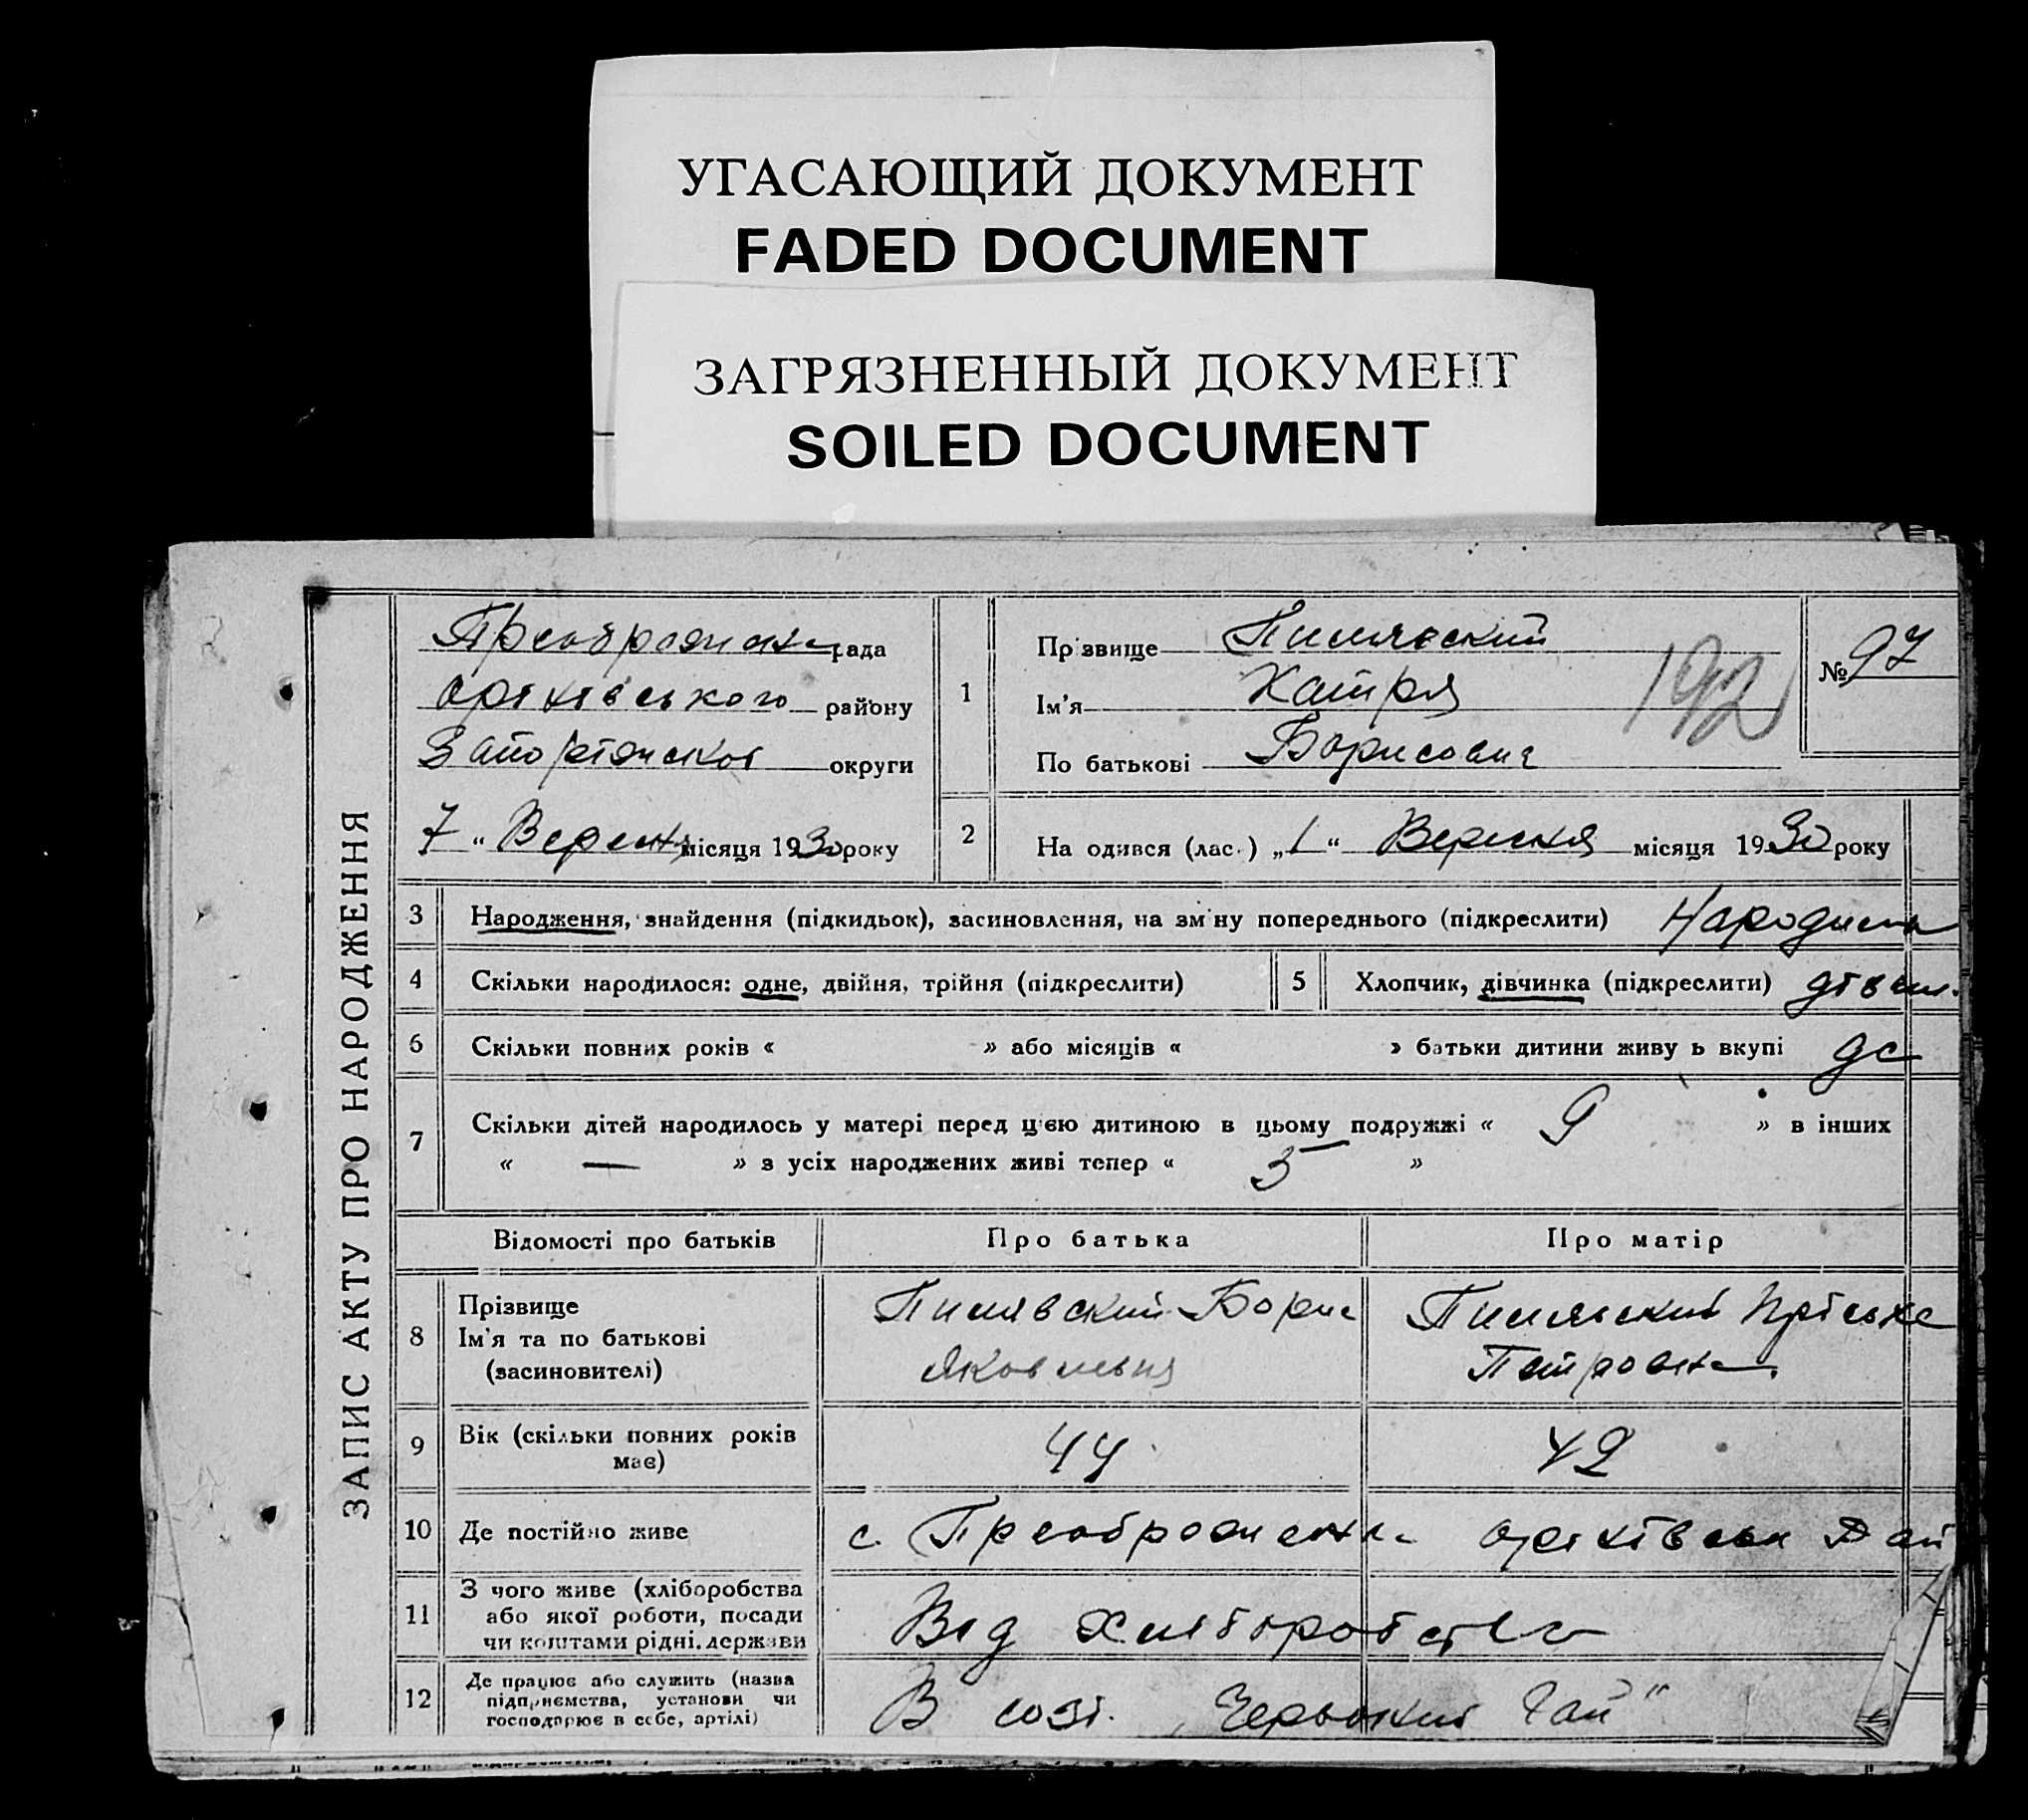 УГАСАЮЩИЙ ДОКУМЕНТ
FADED DOCUMENT
ЗАГРЯЗНЕННЫЙ ДОКУМЕНТ
SOILED DOCUMENT
ЗАПИС АКТУ ПРО НАРОДЖЕННЯ
Преображенська рада
Оріхівського району
Запоріжської округи
7 " Вересня місяця 1930 року
1
Прізвище Пилявский
Ім'я Катря
По батькові Борисовна
192
№ 97
2 На одився (лас.) „1" Вересня місяця 1930 року
3 Народження, знайдення (підкидьок), засиновлення, на зм ну попереднього (підкреслити) Народилась
4 Скільки народилося: одне, двійня, трійня (підкреслити) 5 Хлопчик, дівчинка (підкреслити) дівчин.
6 Скільки повних років « » або місяців « » батьки дитини живу ь вкупі да
7 Скільки дітей народилось у матері перед цією дитиною в цьому подружжі « 9 » в інших
« — » з усіх народжених живі тепер « 5 »
Відомості про батьків Про батька Про матір
8 Прізвище
Ім'я та по батькові
(засиновителі)
Пилявский Борис
Яковлевич
Пилявский Пріська
Петровна.
9 Вік (скільки повних років має) 44 42
10 Де постійно живе с. Преображенка Оріхівськ Рай
11 З чого живе (хліборобства
або якої роботи, посади
чи коштами рідні. держави
Від Хліборобства
12 Де працює або служить (назва
підприємства, установи чи
господарює в себе, артілі)
В созі. „ Гай"